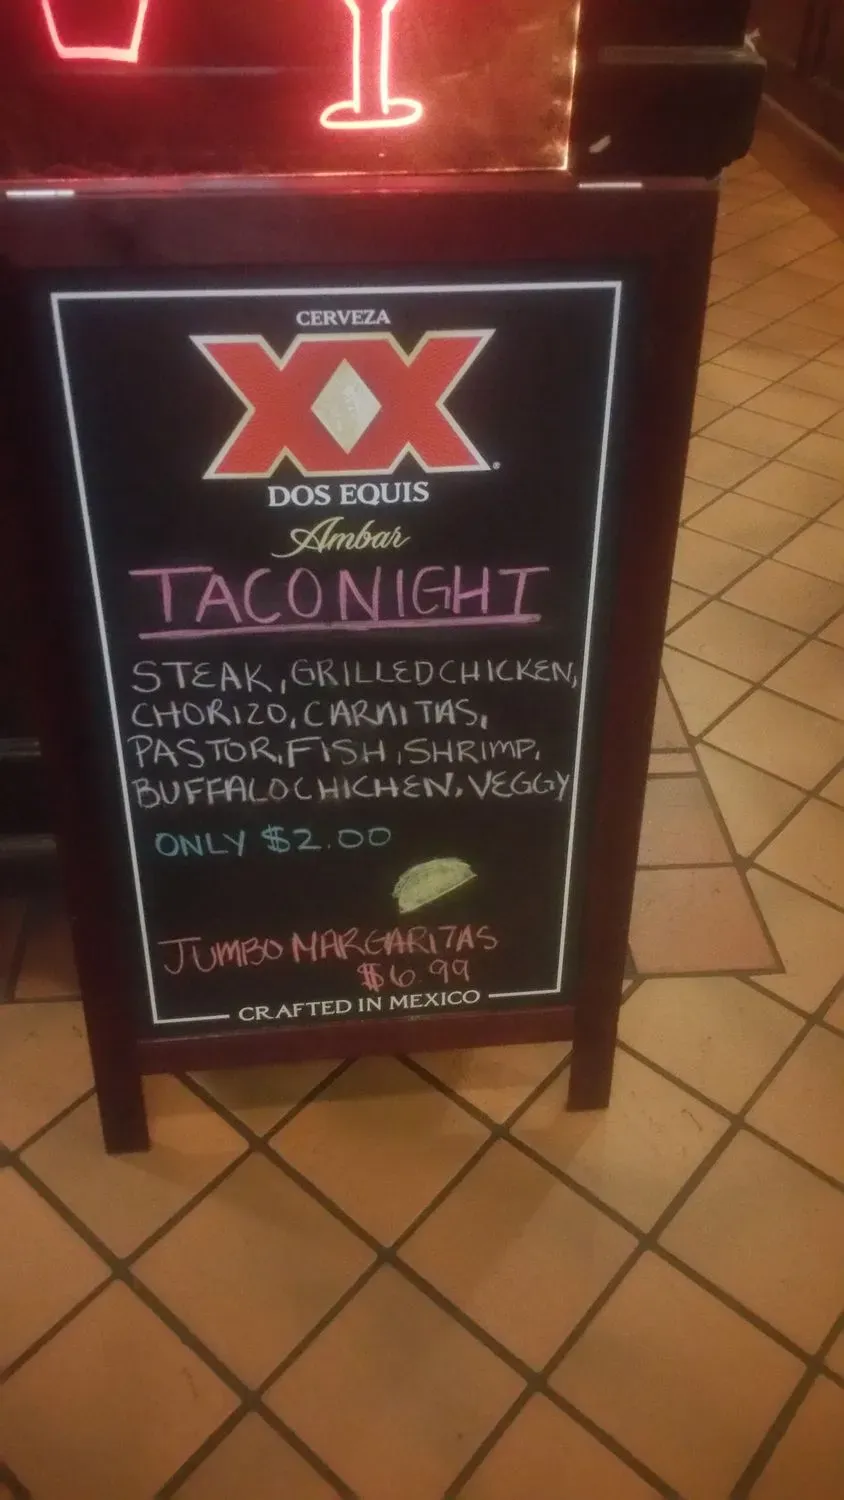 CERVEZA
XX
DOS EQUIS
Ambar
TACO NIGHT
STEAK, GRILLED CHICKEN,
CHORIZO, CARNITAS,
PASTOR, FISH, SHRIMP,
BUFFALO CHICHEN, VEGGY
ONLY $2.00
JUMBO MARGARITAS
$6.99
CRAFTED IN MEXICO